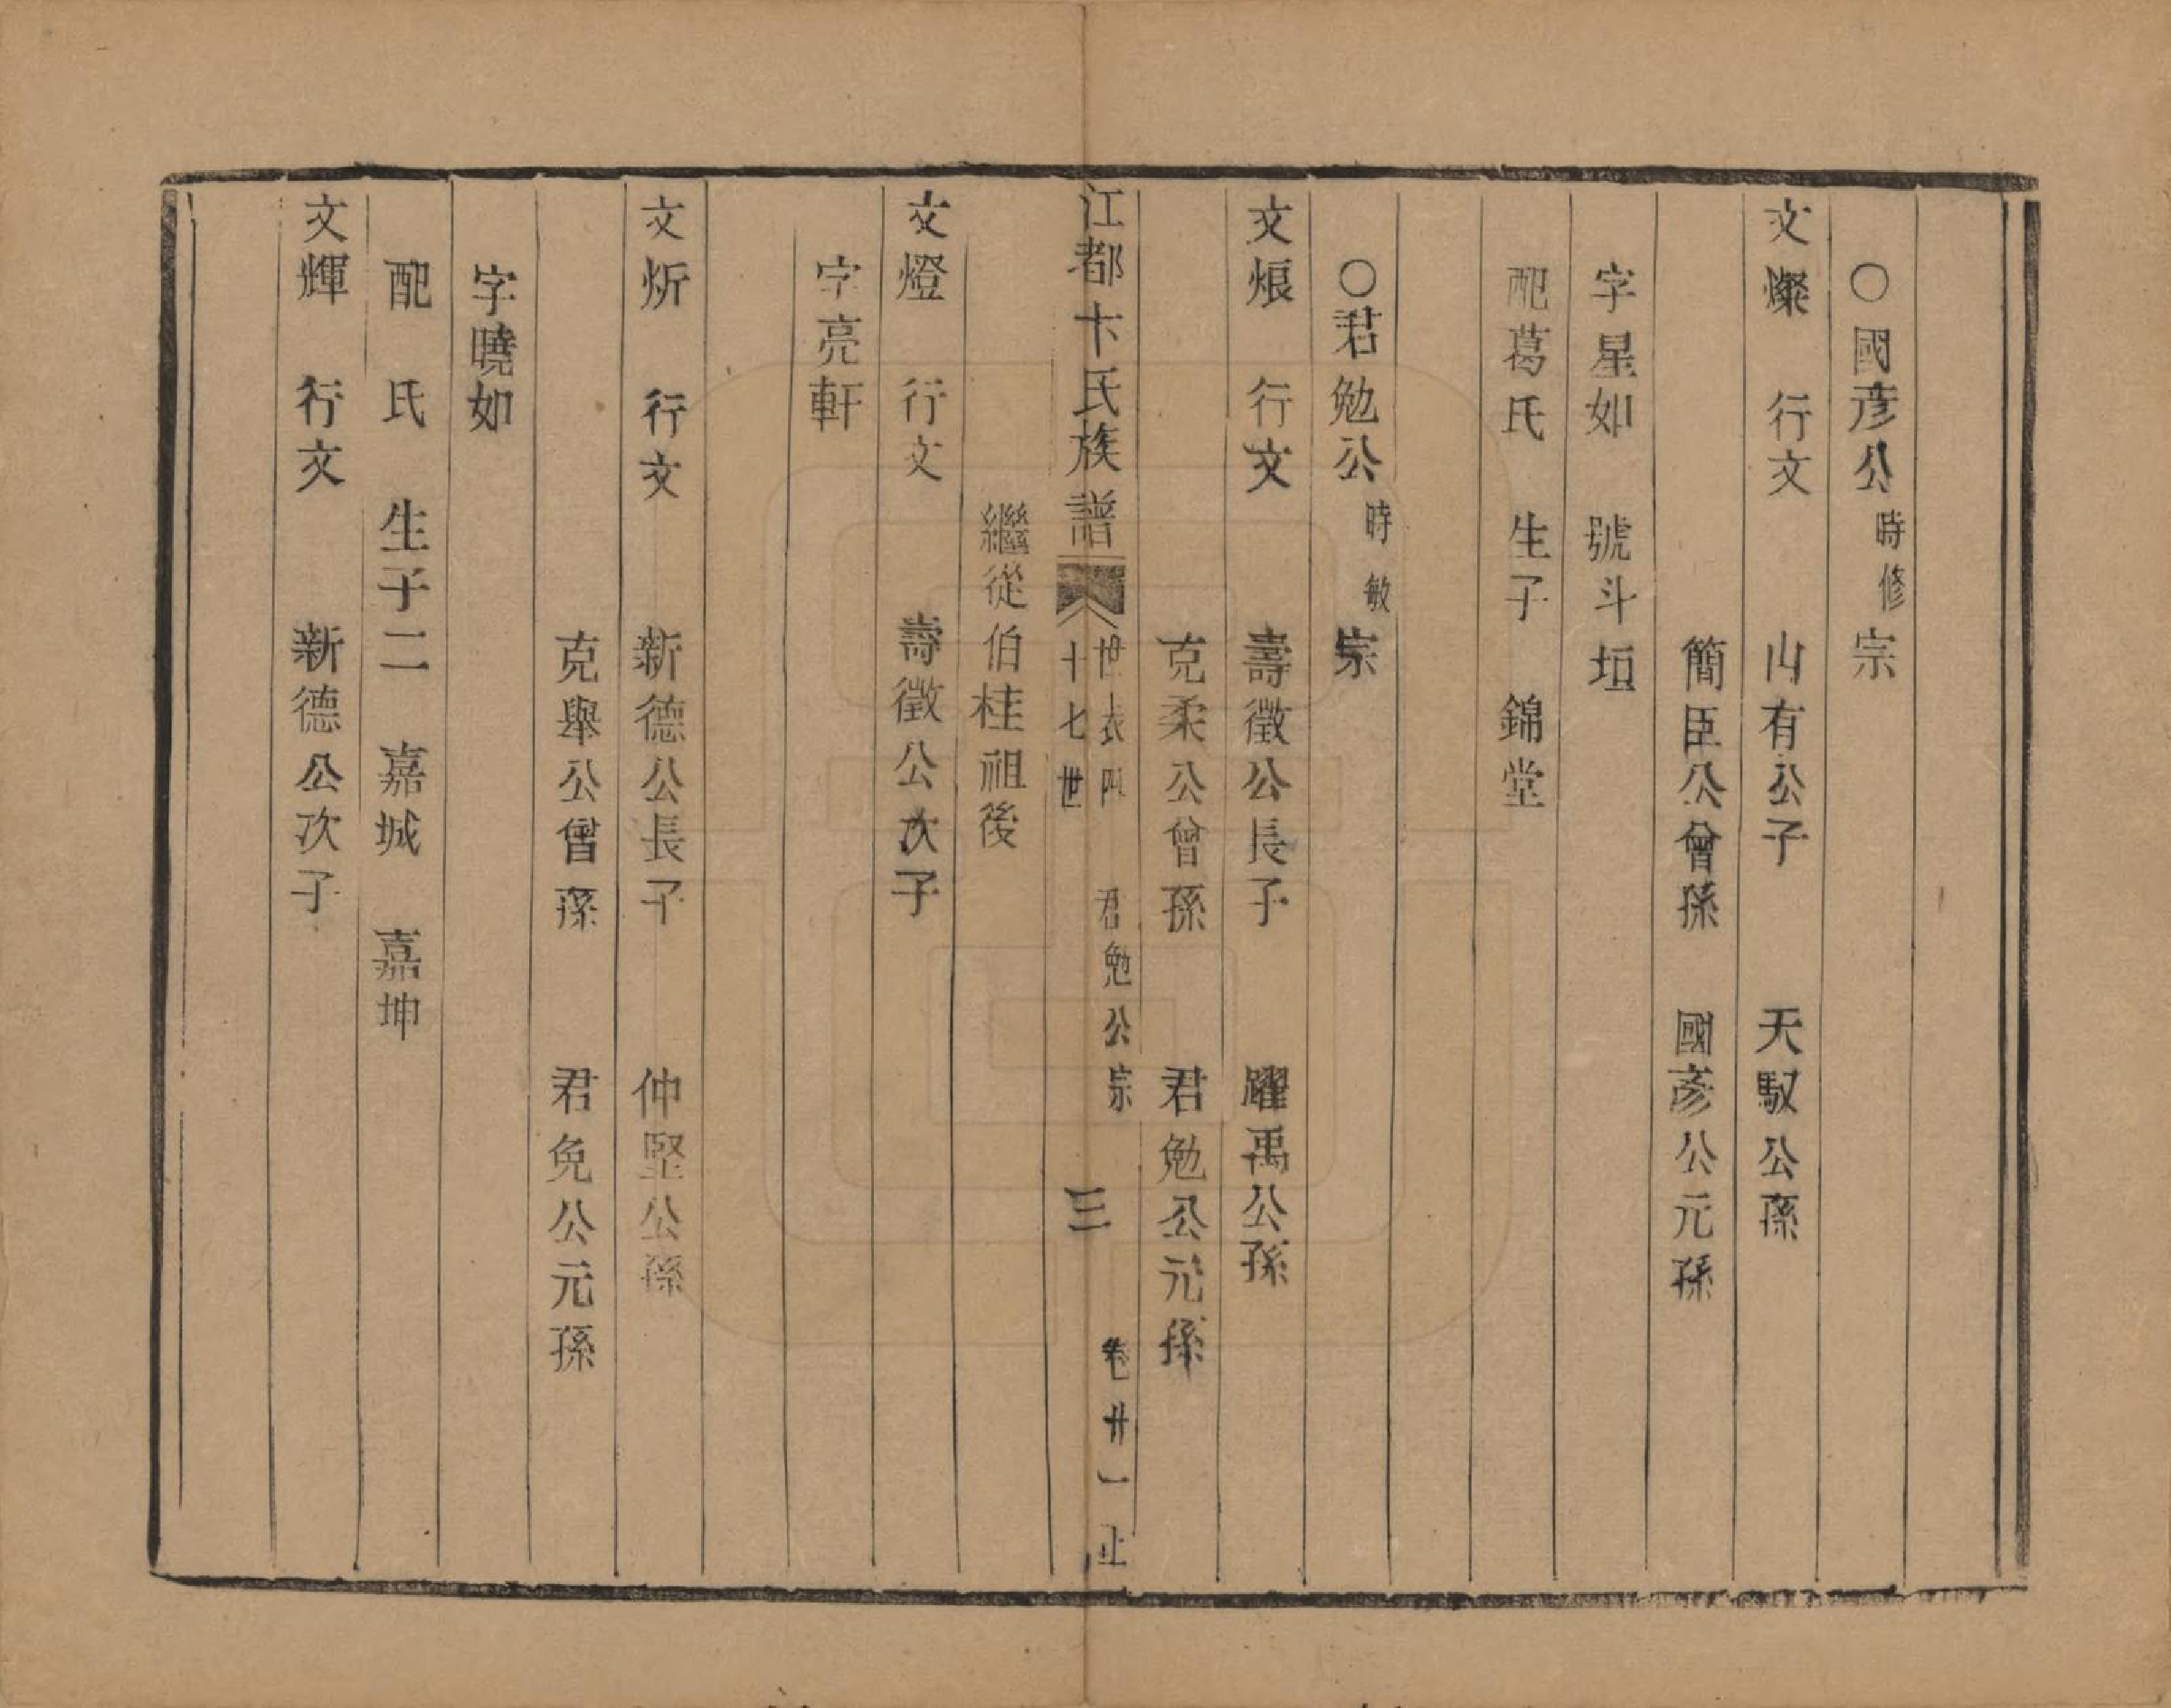 ○國彥公時修宗
文燦 行文 山有公子 天馭公孫
簡臣公曾孫 國彥公元孫
字星如 號斗垣
配葛氏 生子 錦堂
○君勉公時敏宗
文烺 行文 壽徵公長子 躍禹公孫
克柔公曾孫 君勉公元孫
江都卞氏族譜 世表四 十七世 君勉公宗 三 卷廿一止
繼從伯桂祖後
文燈 行文 壽徵公次子
字亮軒
文炘 行文 新德公長子 仲堅公孫
克舉公曾孫 君免公元孫
字曉如
配 氏 生子二 嘉城 嘉坤
文輝 行文 新德公次子